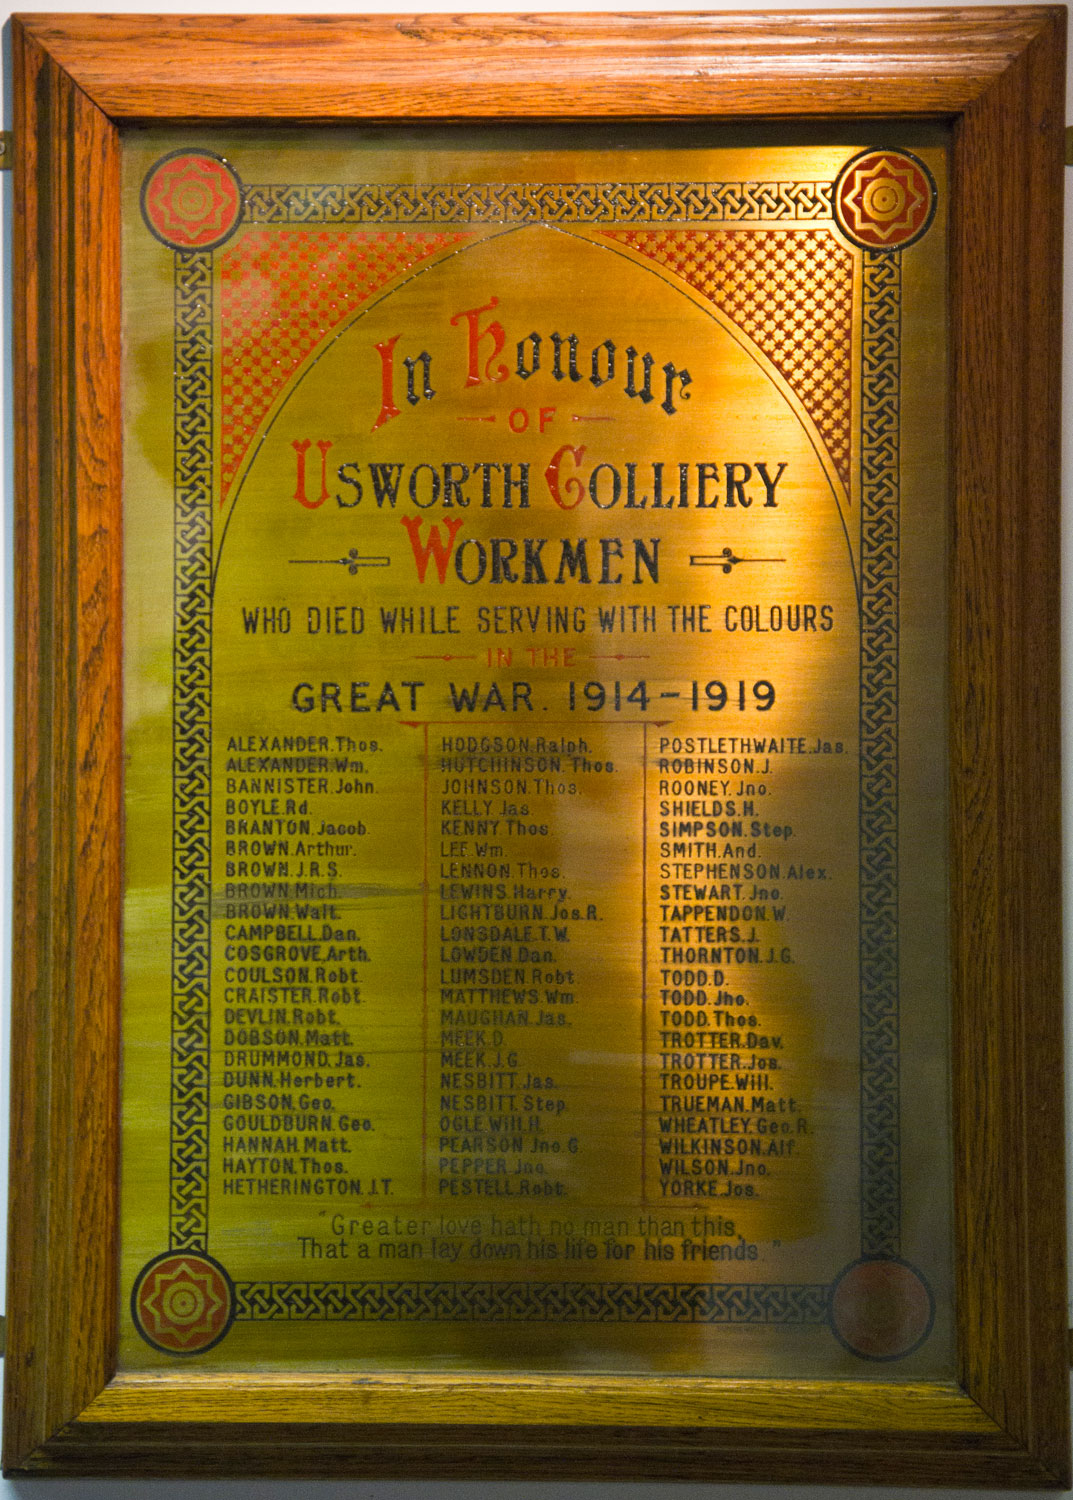 In Honour
OF
USWORTH COLLIERY
WORKMEN
WHO DIED WHILE SERVING WITH THE COLOURS
IN THE
GREAT WAR. 1914-1919
ALEXANDER.Thos.
ALEXANDER.Wm.
BANNISTER.John.
BOYLE.Rd.
BRANTON.Jacob.
BROWN.Arthur.
BROWN.J.R.S.
BROWN.Mich.
BROWN.Walt.
CAMPBELL.Dan.
COSGROVE.Arth.
COULSON.Robt.
CRAISTER.Robt.
DEVLIN.Robt.
DOBSON.Matt.
DRUMMOND.Jas.
DUNN.Herbert.
GIBSON.Geo.
GOULDBURN.Geo.
HANNAH.Matt.
HAYTON.Thos.
HETHERINGTON.J.T.
HODGSON.Ralph.
HUTCHINSON.Thos.
JOHNSON.Thos.
KELLY.Jas.
KENNY.Thos.
LEE.Wm.
LENNON.Thos.
LEWINS.Harry.
LIGHTBURN.Jos.R.
LONSDALE.T.W.
LOWDEN.Dan.
LUMSDEN.Robt.
MATTHEWS.Wm.
MAUGHAN.Jas.
MEEK.D.
MEEK.J.G.
NESBITT.Jas.
NESBITT.Step.
OGLE.Will.H.
PEARSON.Jno.G.
PEPPER.Jno.
PESTELL.Robt.
POSTLETHWAITE.Jas.
ROBINSON.J.
ROONEY.Jno.
SHIELDS.H.
SIMPSON.Step.
SMITH.And.
STEPHENSON.Alex.
STEWART.Jno.
TAPPENDON.W.
TATTERS.J.
THORNTON.J.G.
TODD.D.
TODD.Jno.
TODD.Thos.
TROTTER.Dav.
TROTTER.Jos.
TROUPE.Will.
TRUEMAN.Matt.
WHEATLEY.Geo.R.
WILKINSON.Alf.
WILSON.Jno.
YORKE.Jos.
"Greater love hath no man than this,
That a man lay down his life for his friends."